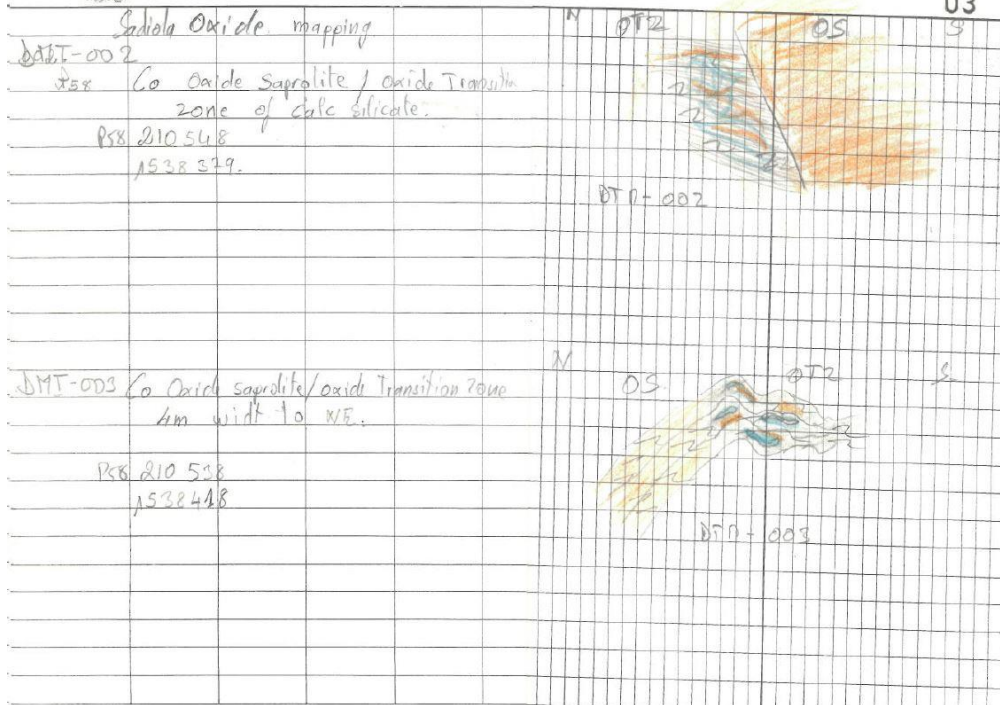 03
Sadiola Oxide mapping
DMT-002
Co Oxide Saprolite / oxide Transition
zone of Calc silicate.
P58 210 548
1538 379.
N OT2 OS S
DTM-002
DMT-003 Co Oxide saprolite/oxide Transition zone
4m widt to NE.
P58 210 538
1538418
N OS OT2 S
DTM-003